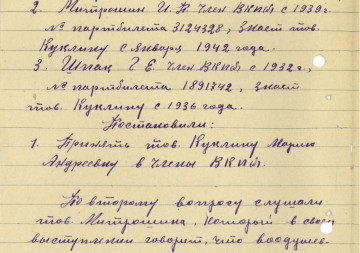 2. Митрошин И. А. член ВКПб с 1939г.
№ партбилета 3124328, знает тов.
Куклину с января 1942 года.
3. Шпак Г. Е. член ВКПб с 1932 г.,
№ партбилета 1891742, знает
тов. Куклину с 1936 года.
Постановили:
1. Принять тов. Куклину Марию
Андреевну в члены ВКПб.
По второму вопросу слушали
тов. Митрошина, который в свои
выступлении говорит, что воодушев-